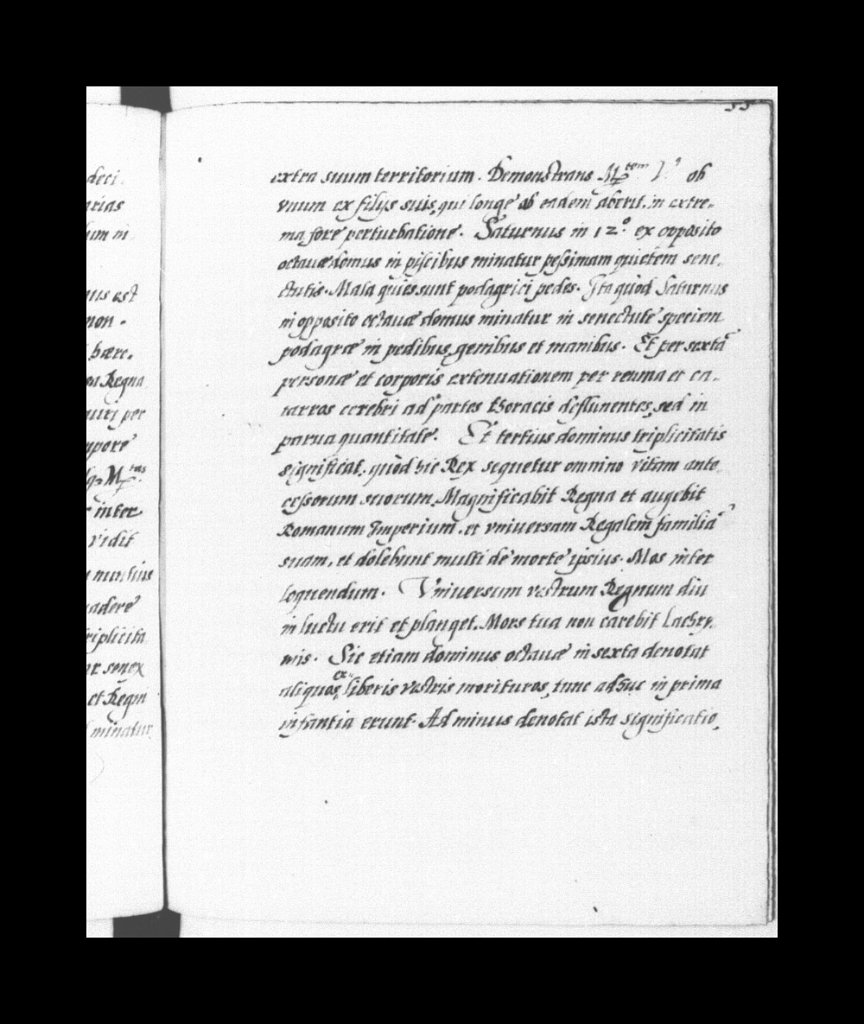 55
extra suum territorium. Demonstrans M.tem V. ob
vnum ex filijs suis, qui longe ab eadem aberit, in extre-
ma fore perturbatione. Saturnus in 12.º ex opposito
octauæ domus in piscibus minatur pessimam quietem sene-
ctutis. Mala quies sunt podagrici pedes. Ita quòd Saturnus
in opposito octauæ domus minatur in senectute speciem
podagræ in pedibus, genibus et manibus. Et per sextã
personæ et corporis extenuationem per reuma et ca-
tarros cerebri ad partes thoracis defluentes, sed in
parua quantitate. Et tertius dominus triplicitatis
significat, quòd hic Rex sequetur omnino vitam ante-
cessorum suorum. Magnificabit Regna et augebit
Romanum Imperium, et vniuersam Regalem familiã
suam, et dolebunt multi de morte ipsius. Mos inter
loquendum. Vniuersum vestrum Regnum diu
in luctu erit et planget. Mors tua non carebit Lachry-
mis. Sic etiam dominus octauæ in sexta denotat
aliquos ex liberis vestris morituros, tunc adhuc in prima
infantia erunt. Ad minus denotat ista significatio,
deci.
arias
nus est
non.
hære-
Regna
per
mpore
M.tas
inter
vidit
nuncius
adere
riplicita
senex
et Regn
minatur